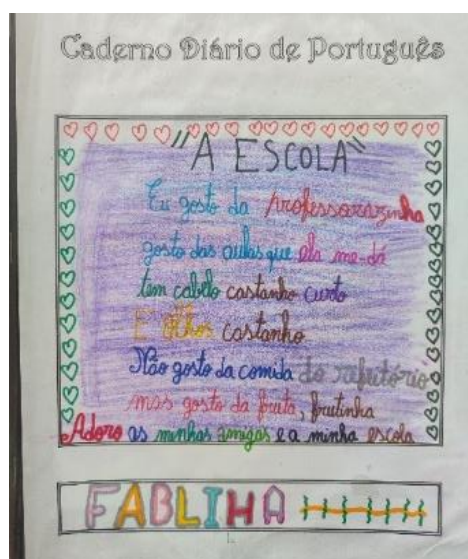 Caderno Diário de Português
"A ESCOLA"
Eu gosto da professorazinha
gosto das aulas que ela me-dá
tem cabelo castanho curto
E olhos castanho.
Não gosto da comida do rafutório
mas gosto da fruta, frutinha
Adoro as minhas amigas e a minha escola
FABLIHA